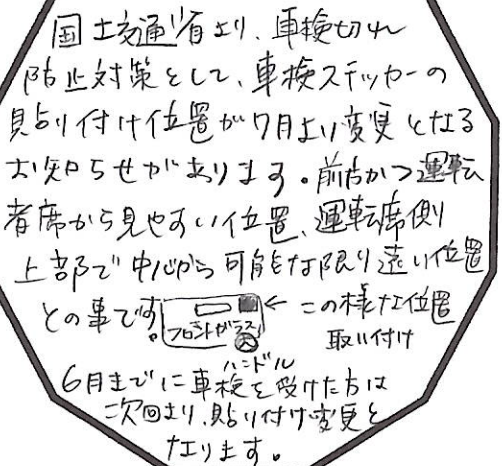 国土交通省より、車検切れ
防止対策として、車検ステッカーの
貼り付け位置が7月より変更となる
お知らせがあります。前方かつ運転
者席から見やすい位置、運転席側
上部で中心から可能な限り遠い位置
との事です。
フロントガラス
← この様な位置
取り付け
ハンドル
6月までに車検を受けた方は
次回より、貼り付け変更と
なります。